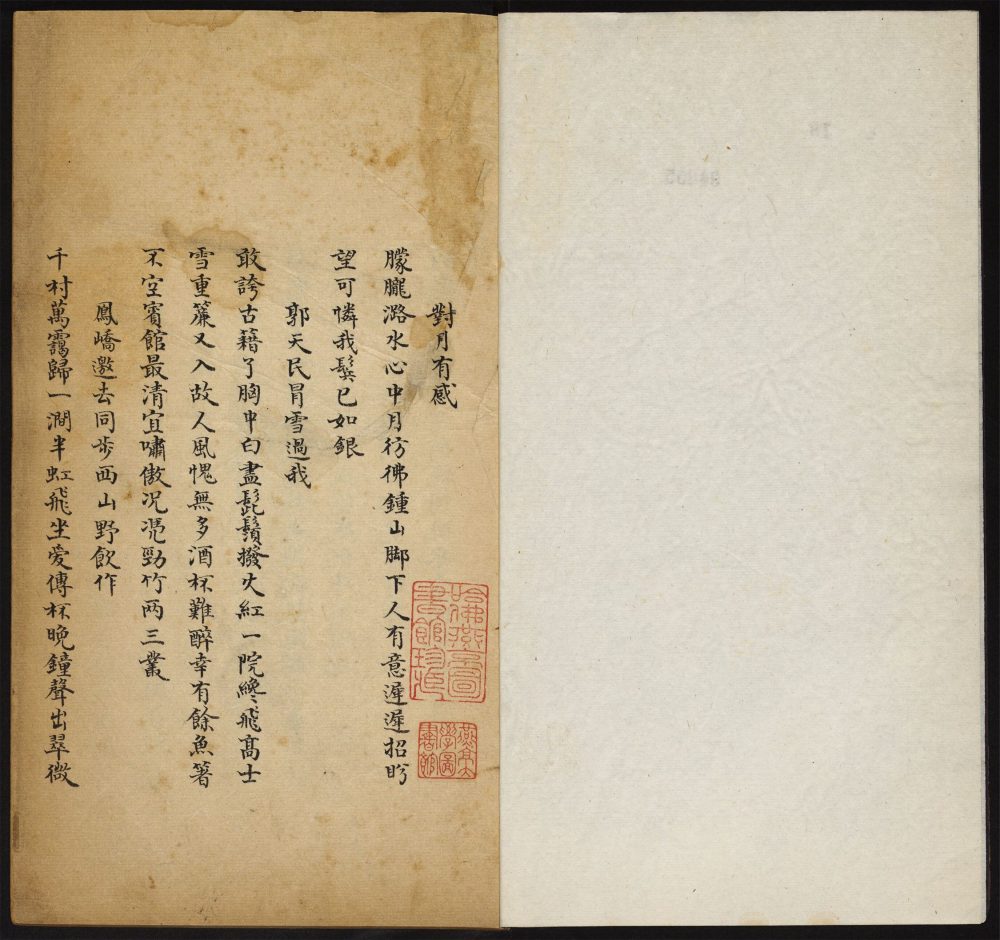 對月有感
朦朧潞水心中月彷彿鍾山脚下人有意遲遲招盻
望可憐我鬓已如銀
郭天民冒雪過我
敢誇古籍了胸中白盡髭鬚撥火紅一院纔飛髙士
雪重簾又入故人風愧無多酒杯難醉幸有餘魚箸
不空賓館最清宜嘯傲况凴勁竹两三叢
鳳嶠邀去同步西山野飲作
千村萬靄歸一澗半虹飛坐愛傳杯晚鐘聲出翠微
哈佛燕圖
書館珍
燕京
學圖
書館